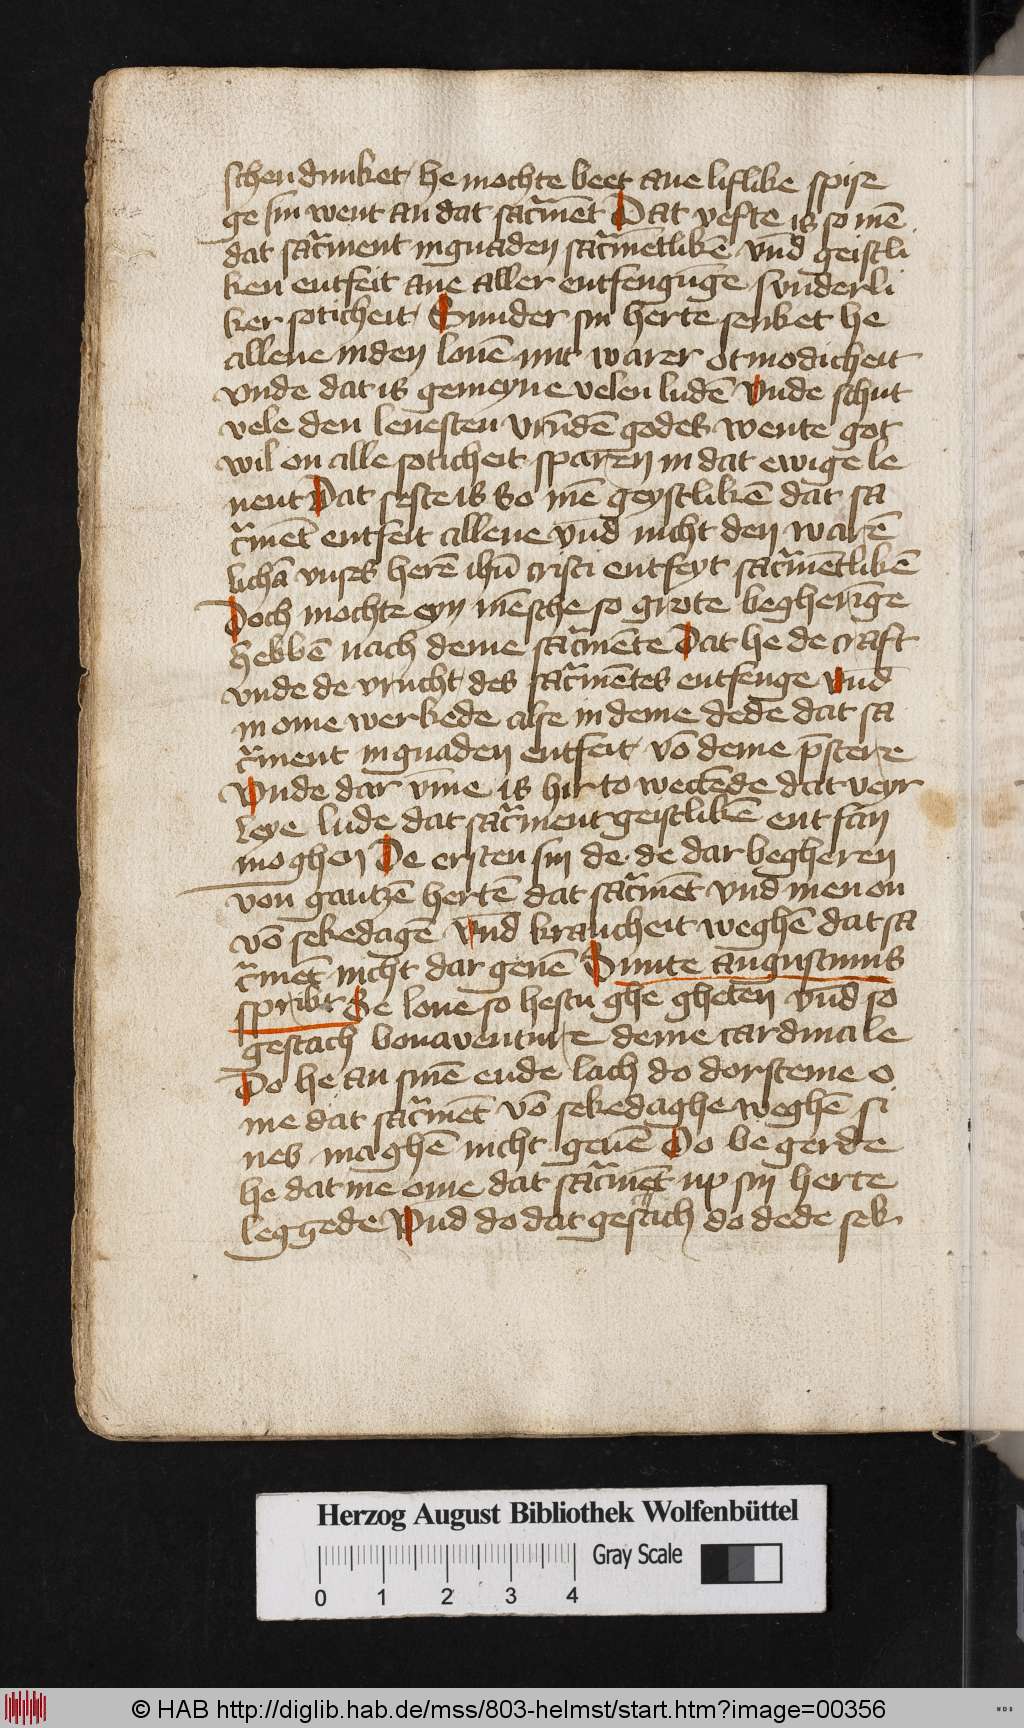 schen dunket he mochte beet ane liflike spise
ge sin went an dat sacͣmēt Dat vefte is so mē
dat sacͣment in gnaden sacͣmētlikē vnd geistli
ken entfeit ane aller entfengnge sunderli
ker soticheit Sunder sin herte senket he
allene in den louē mit warer otmodicheit
vnde dat is gemeyne velen ludē Vnde schut
vele den leuesten vrūdē godes wente got
wil on alle soticheit sparen in dat ewige le
uent Dat seste is So mē geystlikē dat sa
cͣmēt entfeit allene vnd nicht den warē
lichā vnses herē ihū cristi entfeyt sacͣmētlikē
Doch mochte eyn mēsche so grote begheri̅ge
hebbē nach deme sacͣmēte Dat he de craft
vnde de vrucht des sacͣmētes entfenge vnd
in ome werkede alse in deme dede dat sa
cͣment in gnaden entfeit vō deme p̄stere
Vnde dar vm̄e is hir to wetēde dat veyr
leye lude dat sacͣment geistlikē entfan
moghen De ersten sin de de dar begheren
von gantzē hertē dat sacͣmēt vnd men on
vō sekedagē vnd krancheit weghē dat sa
cͣmēt nicht dar geuē Sunte augustinus
spricht Se loue so hestu ghe ghetēn vnd so
gestach bonauenture deme cardinale
Do he an sinē ende lach do dorsteme o
me dat sacͣmēt vō sekedaghe weghē si
nes maghē nicht geuē Do be gerde
he dat me ome dat sacͣmēt up sin herte
leggede Vnd do dat gesach do dede sek
Herzog August Bibliothek Wolfenbüttel
Gray Scale
0 1 2 3 4
© HAB http://diglib.hab.de/mss/803-helmst/start.htm?image=00356